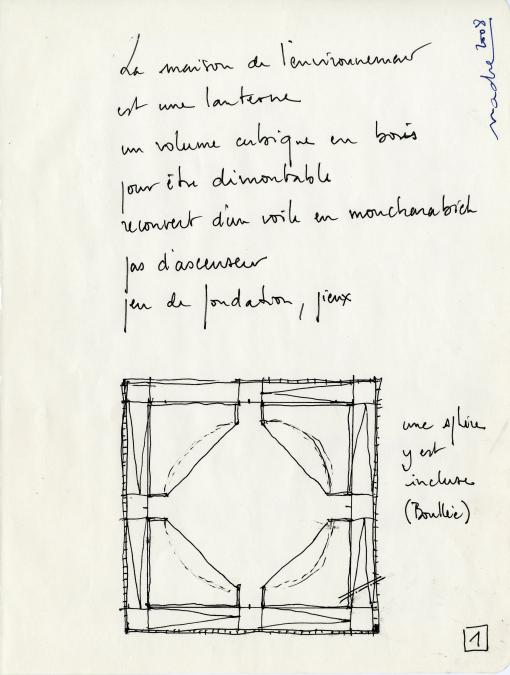 La maison de l'environnement
est une lanterne
un volume cubique en bois
pour être démontable
recouvert d'un voile en moucharabieh
pas d'ascenseur
peu de fondation, pieux
une sphère
y est
incluse
(Boullée)
2008
1